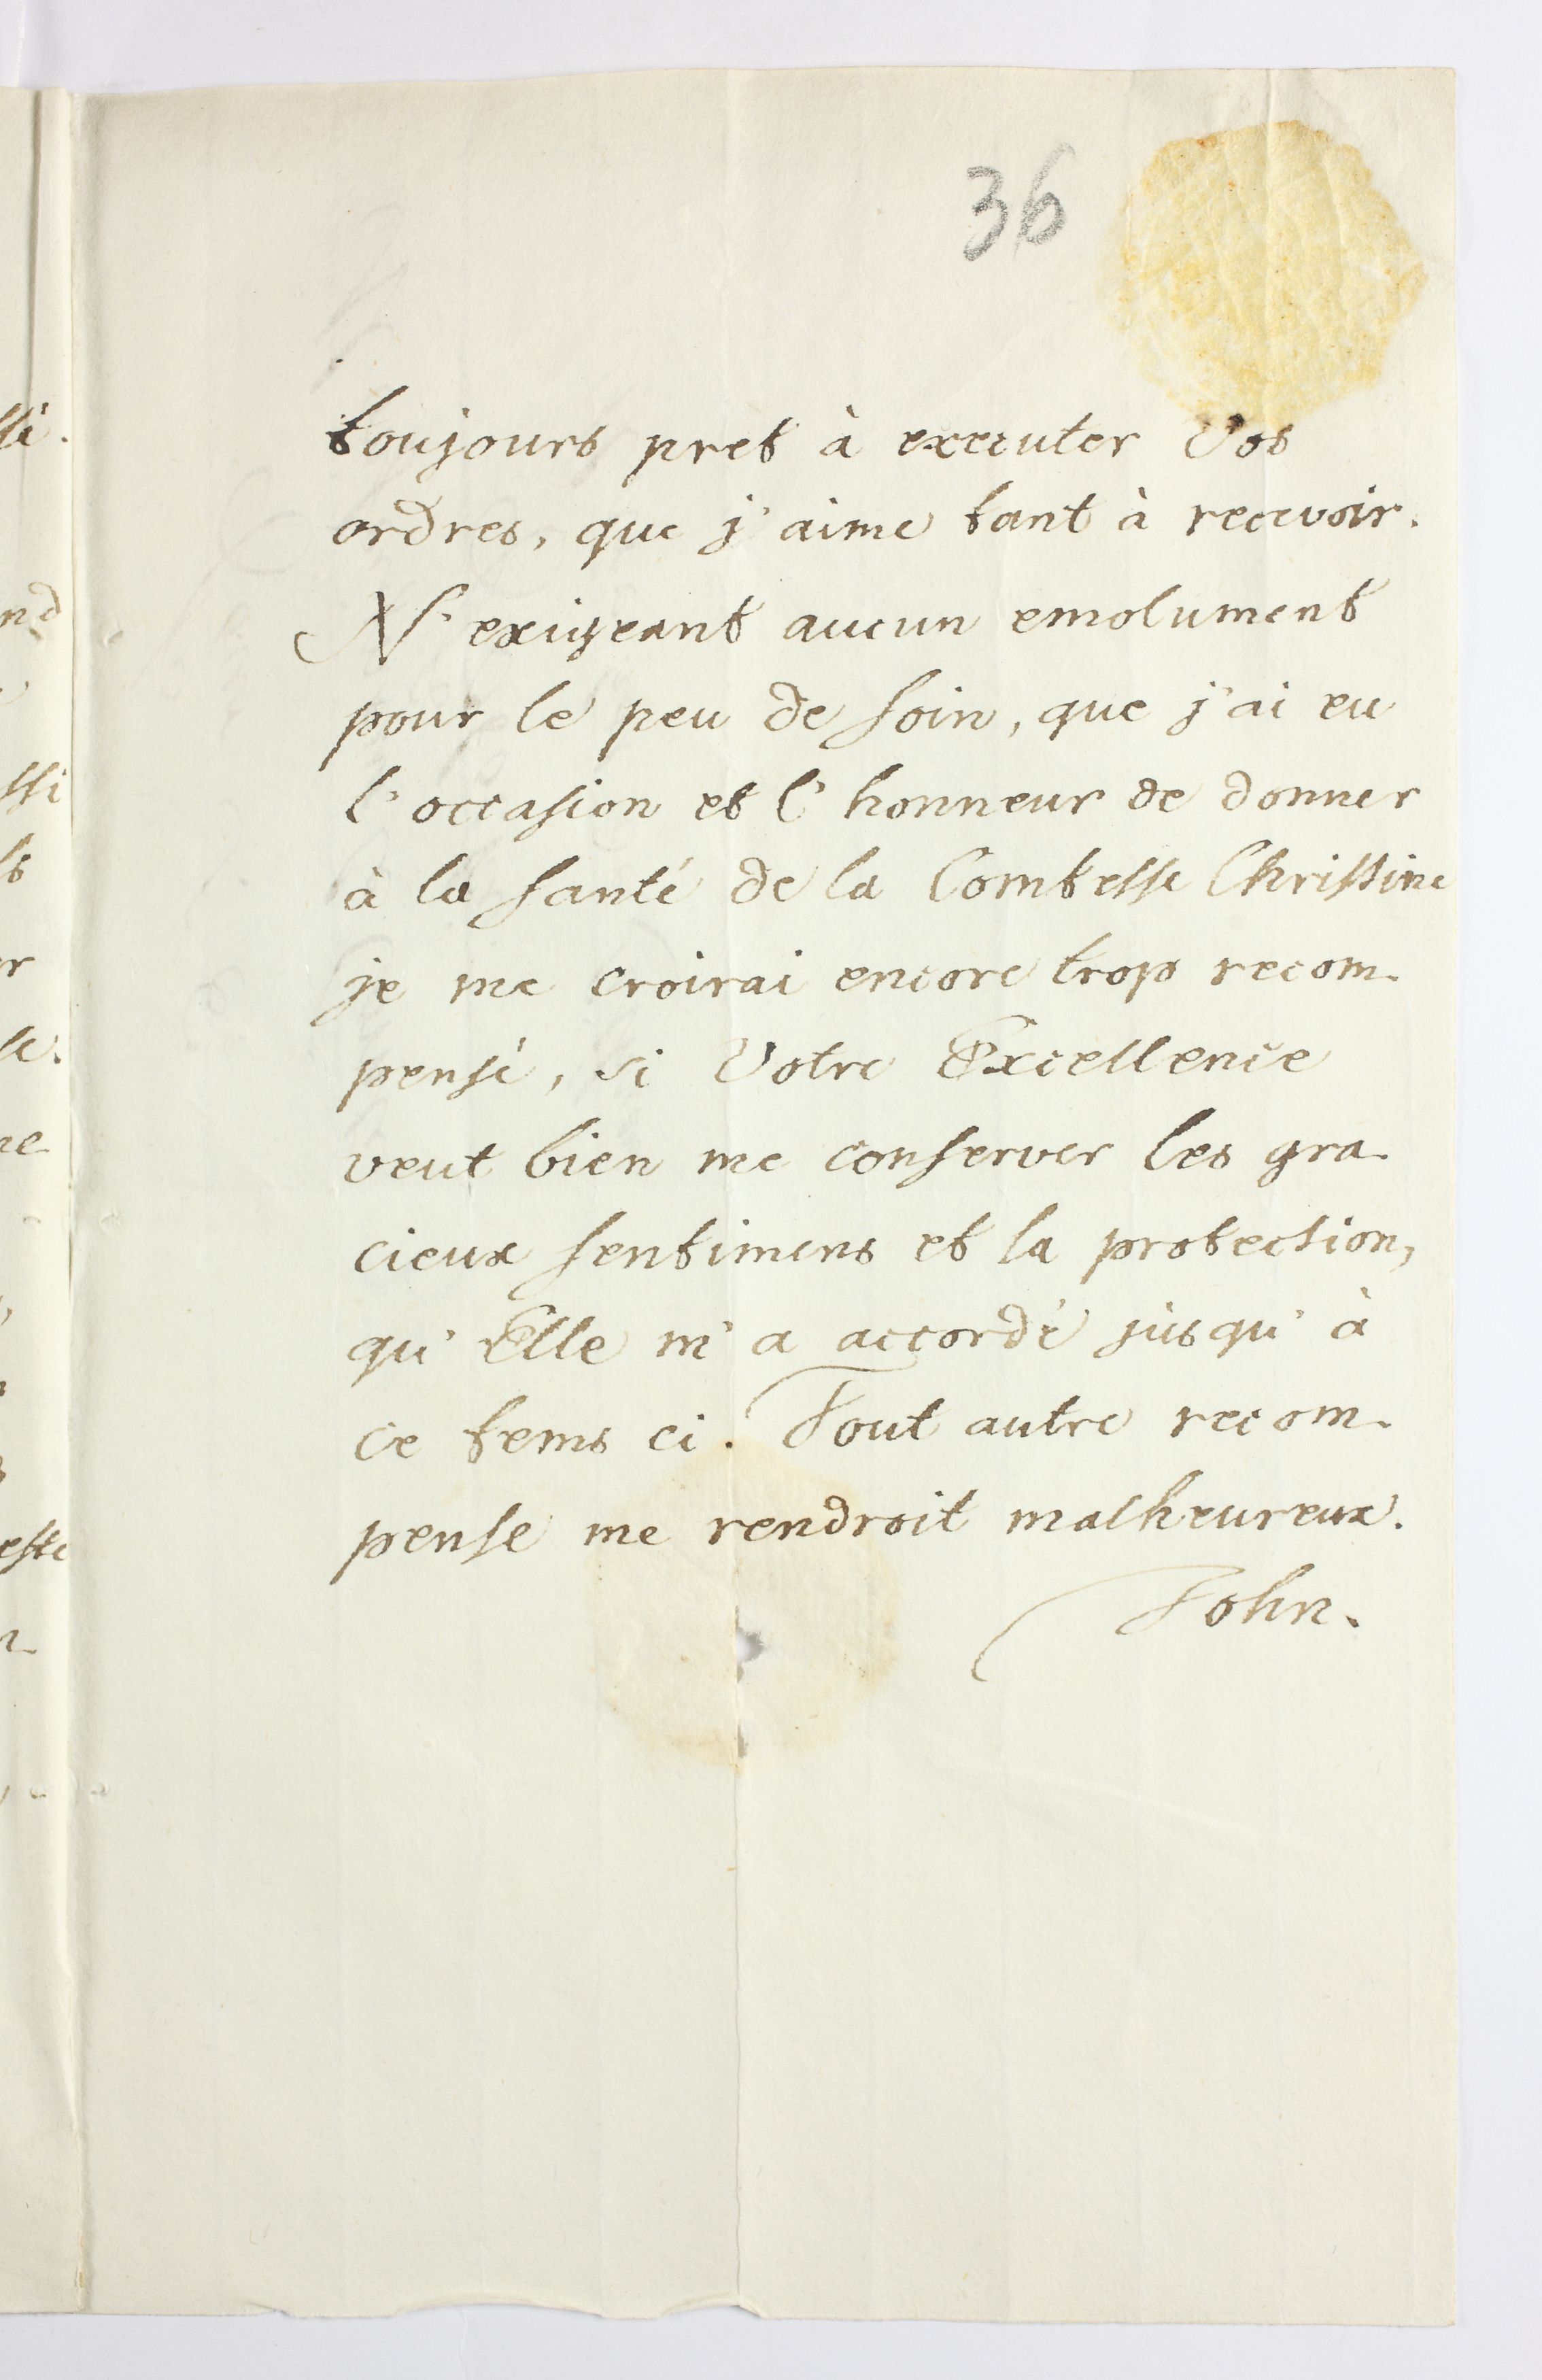 36
toujours pret à executer Vos
ordres, que j'aime tant à recevoir.
N'exigeant aucun emolument
pour le peu de soin, que j'ai eu
l'occasion et l'honneur de donner
à la santé de la Comtesse Christine
je me croirai encore trop recom-
pensé, si Votre Excellence
veut bien me conserver les gra-
cieux sentimens et la protection,
qu'Elle m'a accordé jusqu'à
ce tems ci. Tout autre recom-
pense me rendroit malheureux.
John.